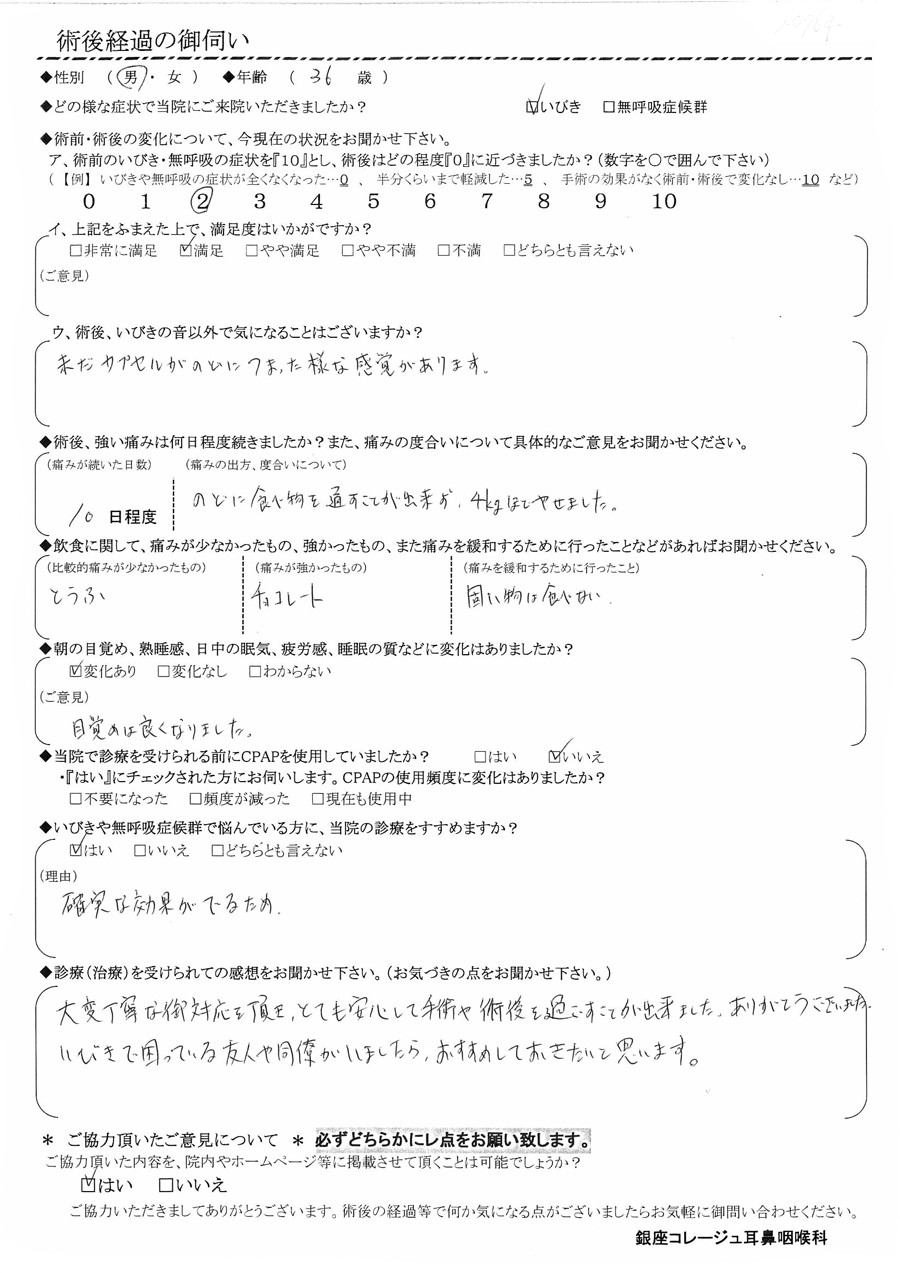 術後経過の御伺い
◆性別 （ 男 ・ 女 ） ◆年齢 （ 36 歳 ）
◆どの様な症状で当院にご来院いただきましたか？ ☑いびき □無呼吸症候群
◆術前・術後の変化について、今現在の状況をお聞かせ下さい。
ア、術前のいびき・無呼吸の症状を『10』とし、術後はどの程度『0』に近づきましたか？（数字を○で囲んで下さい）
（【例】いびきや無呼吸の症状が全くなくなった…0 、 半分くらいまで軽減した…5 、 手術の効果がなく術前・術後で変化なし…10 など）
0 1 2 3 4 5 6 7 8 9 10
イ、上記をふまえた上で、満足度はいかがですか？
□非常に満足 ☑満足 □やや満足 □やや不満 □不満 □どちらとも言えない
（ご意見）
ウ、術後、いびきの音以外で気になることはございますか？
未だカプセルがのどにつまった様な感覚があります。
◆術後、強い痛みは何日程度続きましたか？また、痛みの度合いについて具体的なご意見をお聞かせください。
（痛みが続いた日数） （痛みの出方、度合いについて）
10 日程度 のどに食べ物を通すことが出来ず、4kgほどやせました。
◆飲食に関して、痛みが少なかったもの、強かったもの、また痛みを緩和するために行ったことなどがあればお聞かせください。
（比較的痛みが少なかったもの） （痛みが強かったもの） （痛みを緩和するために行ったこと）
とうふ チョコレート 固い物は食べない.
◆朝の目覚め、熟睡感、日中の眠気、疲労感、睡眠の質などに変化はありましたか？
☑変化あり □変化なし □わからない
（ご意見）
目覚めは良くなりました。
◆当院で診療を受けられる前にCPAPを使用していましたか？ □はい ☑いいえ
・『はい』にチェックされた方にお伺いします。CPAPの使用頻度に変化はありましたか？
□不要になった □頻度が減った □現在も使用中
◆いびきや無呼吸症候群で悩んでいる方に、当院の診療をすすめますか？
☑はい □いいえ □どちらとも言えない
（理由）
確実な効果がでるため.
◆診療（治療）を受けられての感想をお聞かせ下さい。（お気づきの点をお聞かせ下さい。）
大変丁寧な御対応を頂き、とても安心して手術や術後を過ごすことが出来ました。ありがとうございました。
いびきで困っている友人や同僚がいましたら、おすすめしておきたいと思います。
＊ ご協力頂いたご意見について ＊ 必ずどちらかにレ点をお願い致します。
ご協力頂いた内容を、院内やホームページ等に掲載させて頂くことは可能でしょうか？
☑はい □いいえ
ご協力いただきましてありがとうございます。術後の経過等で何か気になる点がございましたらお気軽に御問い合わせください。
銀座コレージュ耳鼻咽喉科